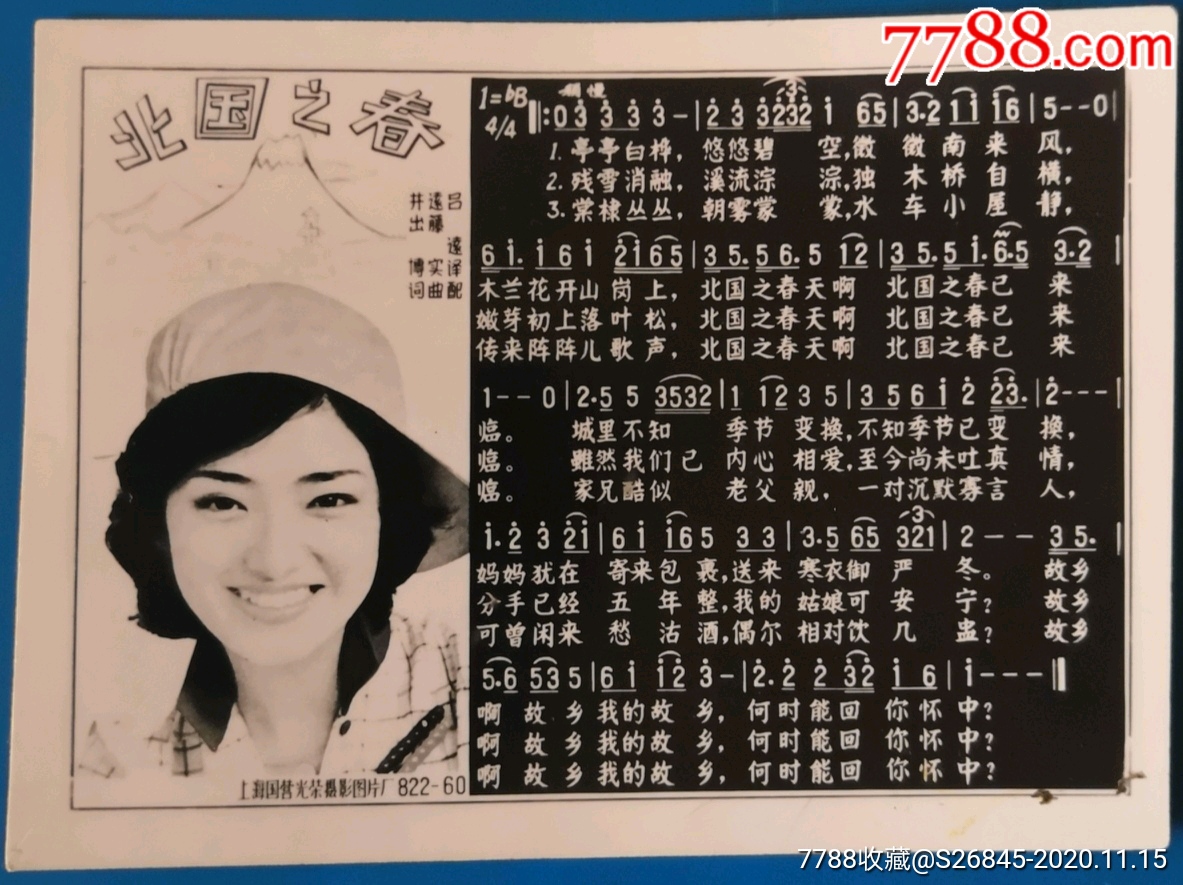 7788.com
北国之春
井出博词
遠藤实曲
吕遠译配
1=bB
4/4
稍慢
0 3 3 3 3 - | 2 3 3232 1 65 | 3·2 11 16 | 5 - - 0 |
1. 亭亭白桦，悠悠碧 空,微 微南来 风，
2. 残雪消融，溪流淙 淙,独 木桥自 横，
3. 棠棣丛丛，朝雾蒙 蒙,水 车小屋 静，
6 1· 1 6 1 2165 | 3 5· 5 6· 5 12 | 3 5· 5 1· 6·5 3·2 |
木兰花开山岗上，北国之春天啊 北国之春已 来
嫩芽初上落叶松，北国之春天啊 北国之春已 来
传来阵阵儿歌声，北国之春天啊 北国之春已 来
1 - - 0 | 2·5 5 3532 | 1 12 3 5 | 3 5 6 1 2 23· | 2 - - - |
临。 城里不知 季节 变换,不知季节已变 换，
临。 雖然我们已 内心 相爱,至今尚未吐真 情，
临。 家兄酷似 老父 親，一对沉默寡言 人，
1·2 3 21 | 6 1 165 3 3 | 3·5 65 321 | 2 - - 3 5· |
妈妈犹在 寄来包 裹,送来 寒衣御 严 冬。 故乡
分手已经 五 年 整,我的 姑娘可 安 宁？ 故乡
可曾闲来 愁 沽 酒,偶尔 相对饮 几 盅？ 故乡
5·6 53 5 | 6 1 12 3 - | 2·2 2 32 1 6 | 1 - - - ‖
啊 故 乡 我的故 乡，何时能回 你怀中？
啊 故 乡 我的故 乡，何时能回 你怀中？
啊 故 乡 我的故 乡，何时能回 你怀中？
上海国营光荣攝影图片厂 822-60
7788收藏@S26845-2020.11.15